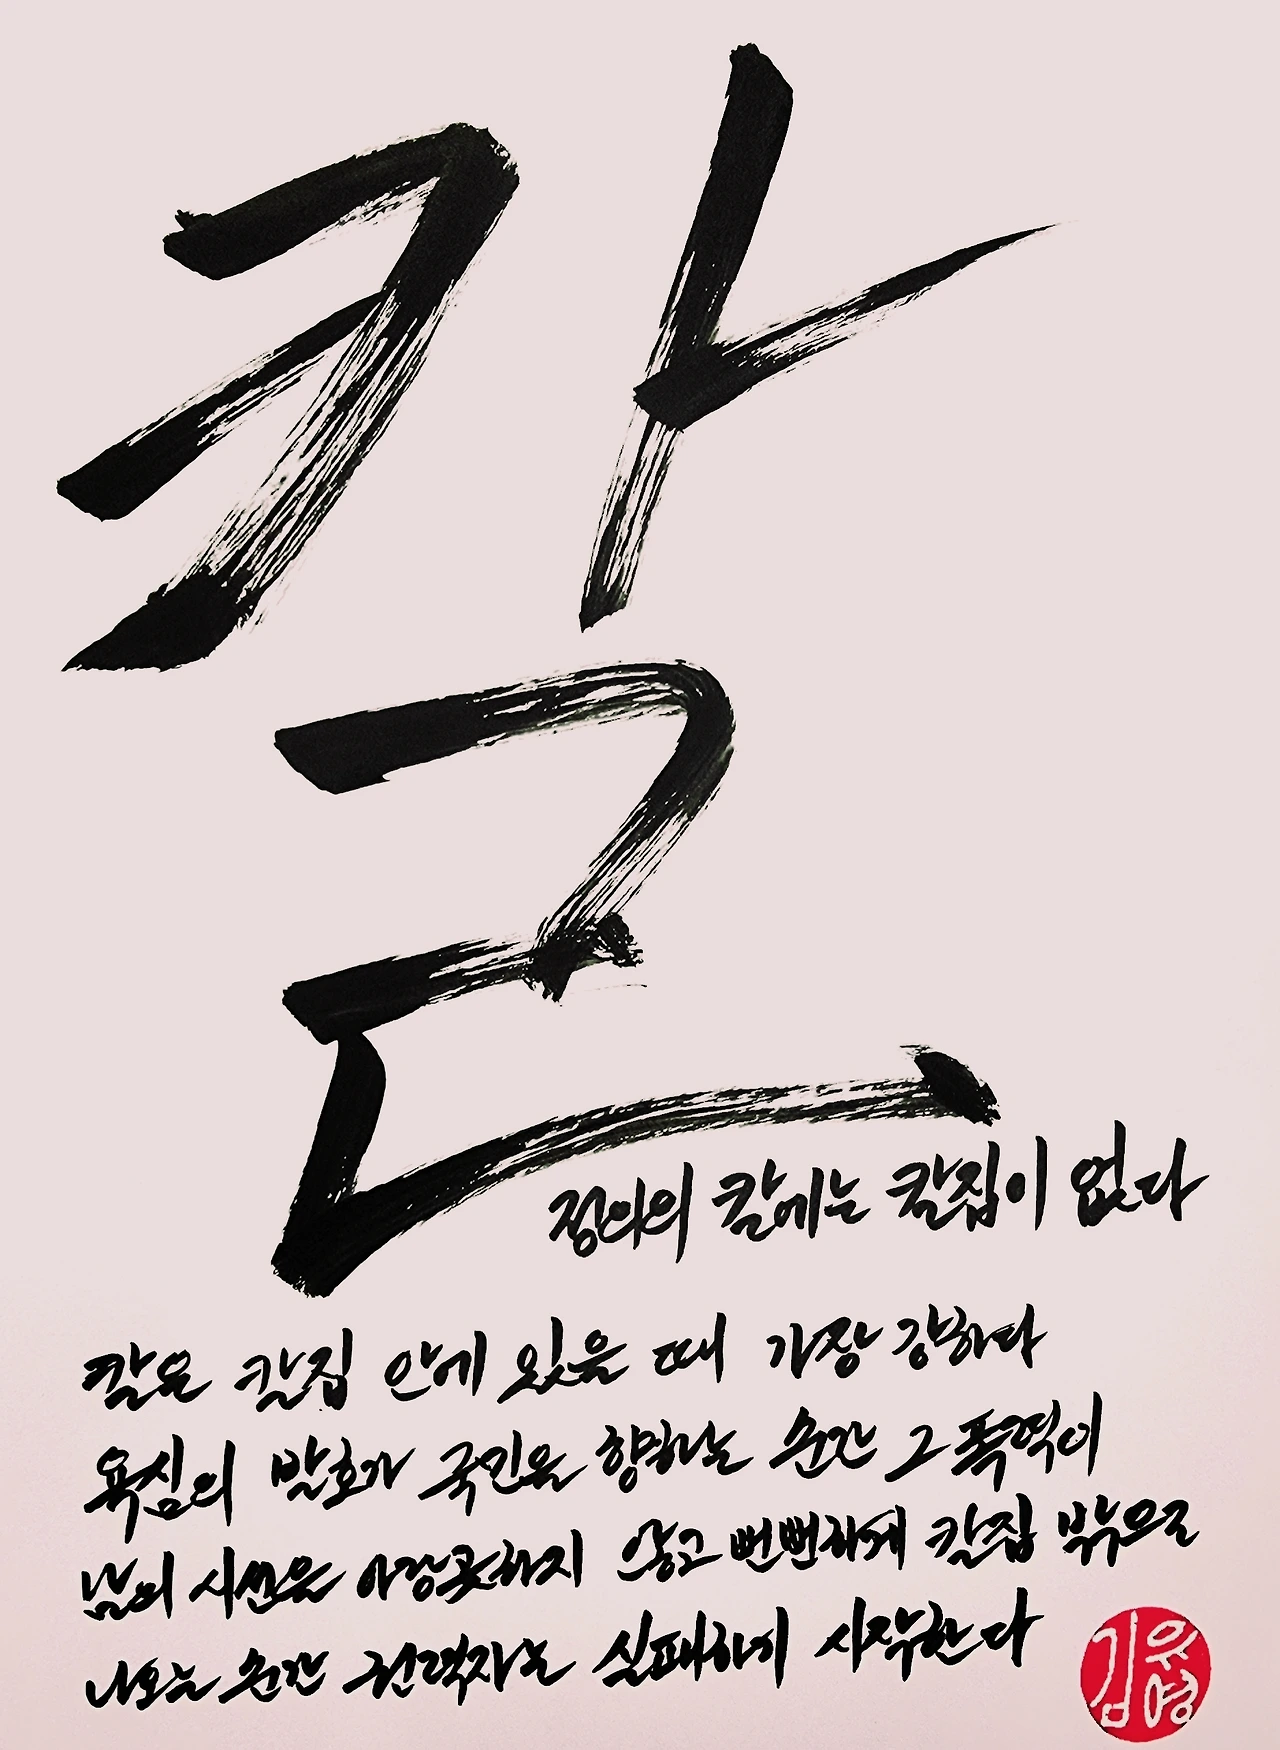 칼
정의의 칼에는 칼집이 없다
칼은 칼집 안에 있을 때 가장 강하다
욕심의 발호가 국민을 향하는 순간 그 폭력이
남의 시선은 아랑곳하지 않고 뻔뻔하게 칼집 밖으로
나오는 순간 권력자는 실패하기 시작한다
김유영